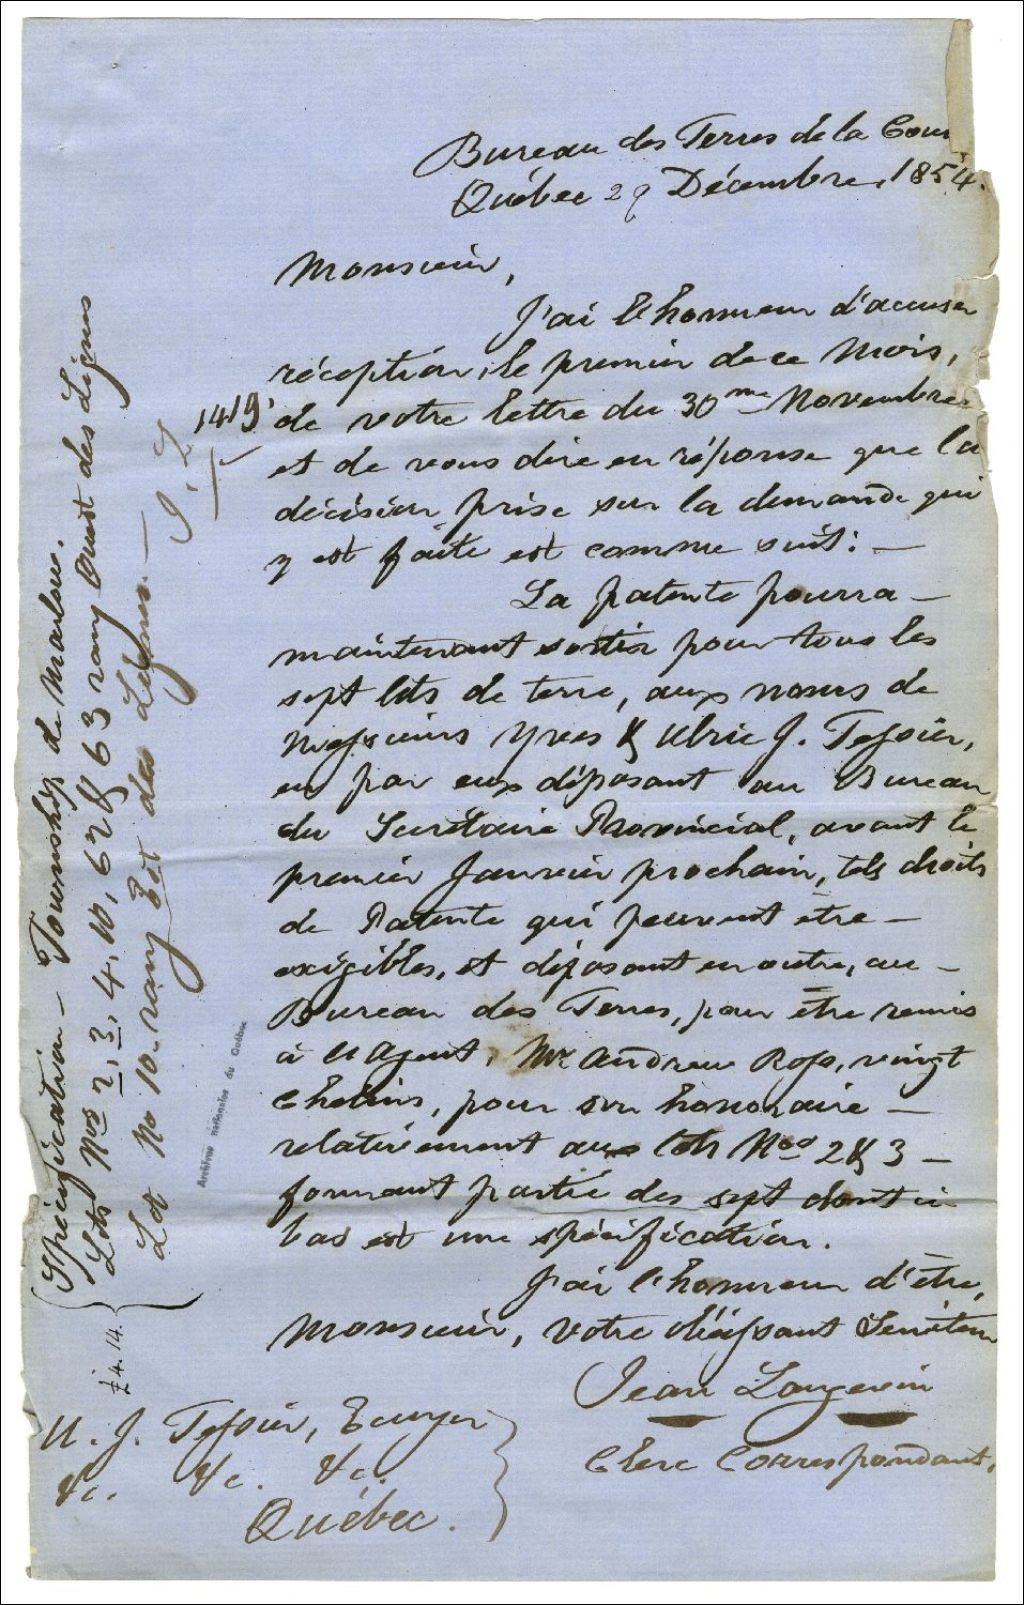 Bureau des Terres de la Cour
Québec 29 Décembre, 1854.
Monsieur,
J'ai l'honneur d'accuser
réception, le premier de ce Mois,
1419 de votre lettre du 30me Novembre
et de vous dire en réponse que la
décision prise sur la demande qui
y est faite est comme suit: —
La patente pourra —
maintenant sortir pour tous les
sept lots de terre, aux noms de
Messieurs Yves & Ulric J. Tessier,
en par eux déposant au Bureau
du Secrétaire Provincial, avant le
premier Janvier prochain, tels droits
de Patente qui peuvent être —
exigibles, et déposant en outre, au —
Bureau des Terres, pour être remis
à l'Agent, Mr. Andrew Ross, vingt
Chelins, pour son honoraire —
relativement aux lots Nos 2 & 3 —
formant partie des sept dont ci
bas est une spécification.
J'ai l'honneur d'être,
Monsieur, votre obéissant Serviteur
Jean Langevin
Clerc Correspondant.
U. J. Tessier, Ecuyer
&c. &c. &c.
Québec.
Spécification — Township de
Lots Nos 2, 3, 4, 10, 62 & 63 rang Ouest des Lignes
Lot No 10 rang Est des Lignes. —
£4.14.
Archives nationales du Québec